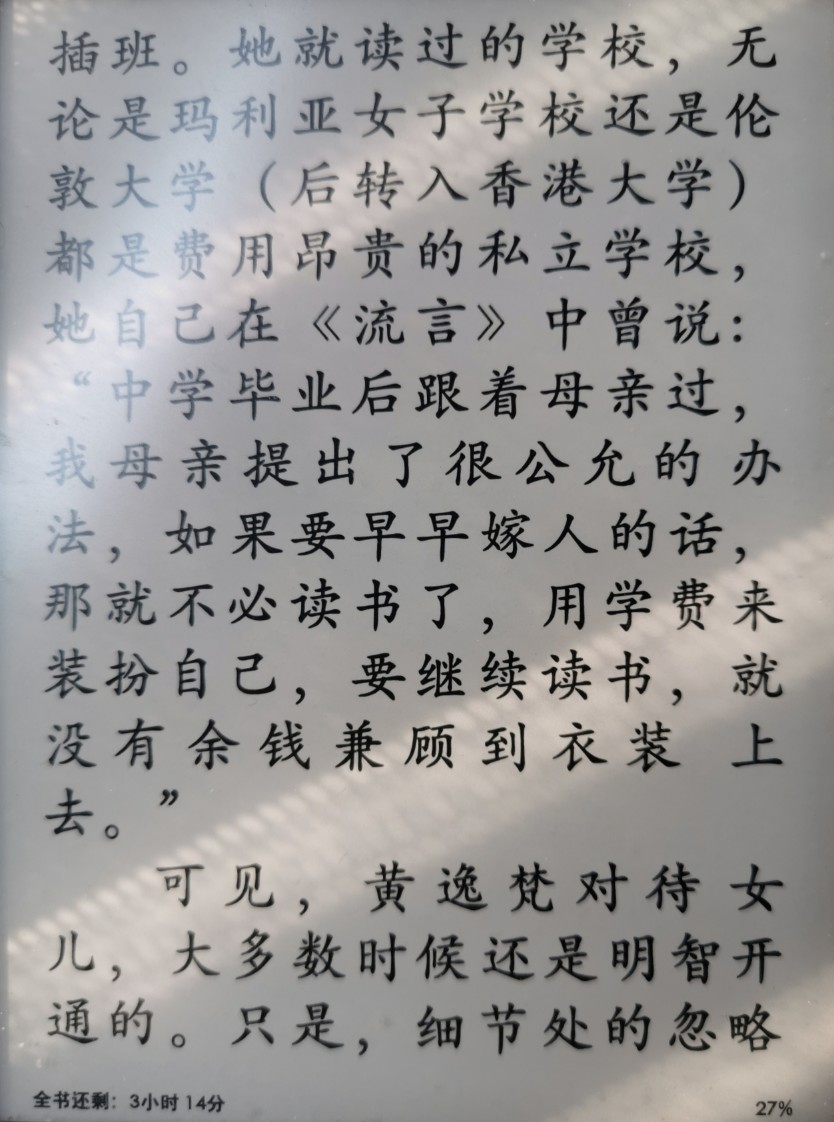 插班。她就读过的学校，无
论是玛利亚女子学校还是伦
敦大学（后转入香港大学）
都是费用昂贵的私立学校，
她自己在《流言》中曾说：
“中学毕业后跟着母亲过，
我母亲提出了很公允的办
法，如果要早早嫁人的话，
那就不必读书了，用学费来
装扮自己，要继续读书，就
没有余钱兼顾到衣装上
去。”
可见，黄逸梵对待女
儿，大多数时候还是明智开
通的。只是，细节处的忽略
全书还剩：3小时14分
27%